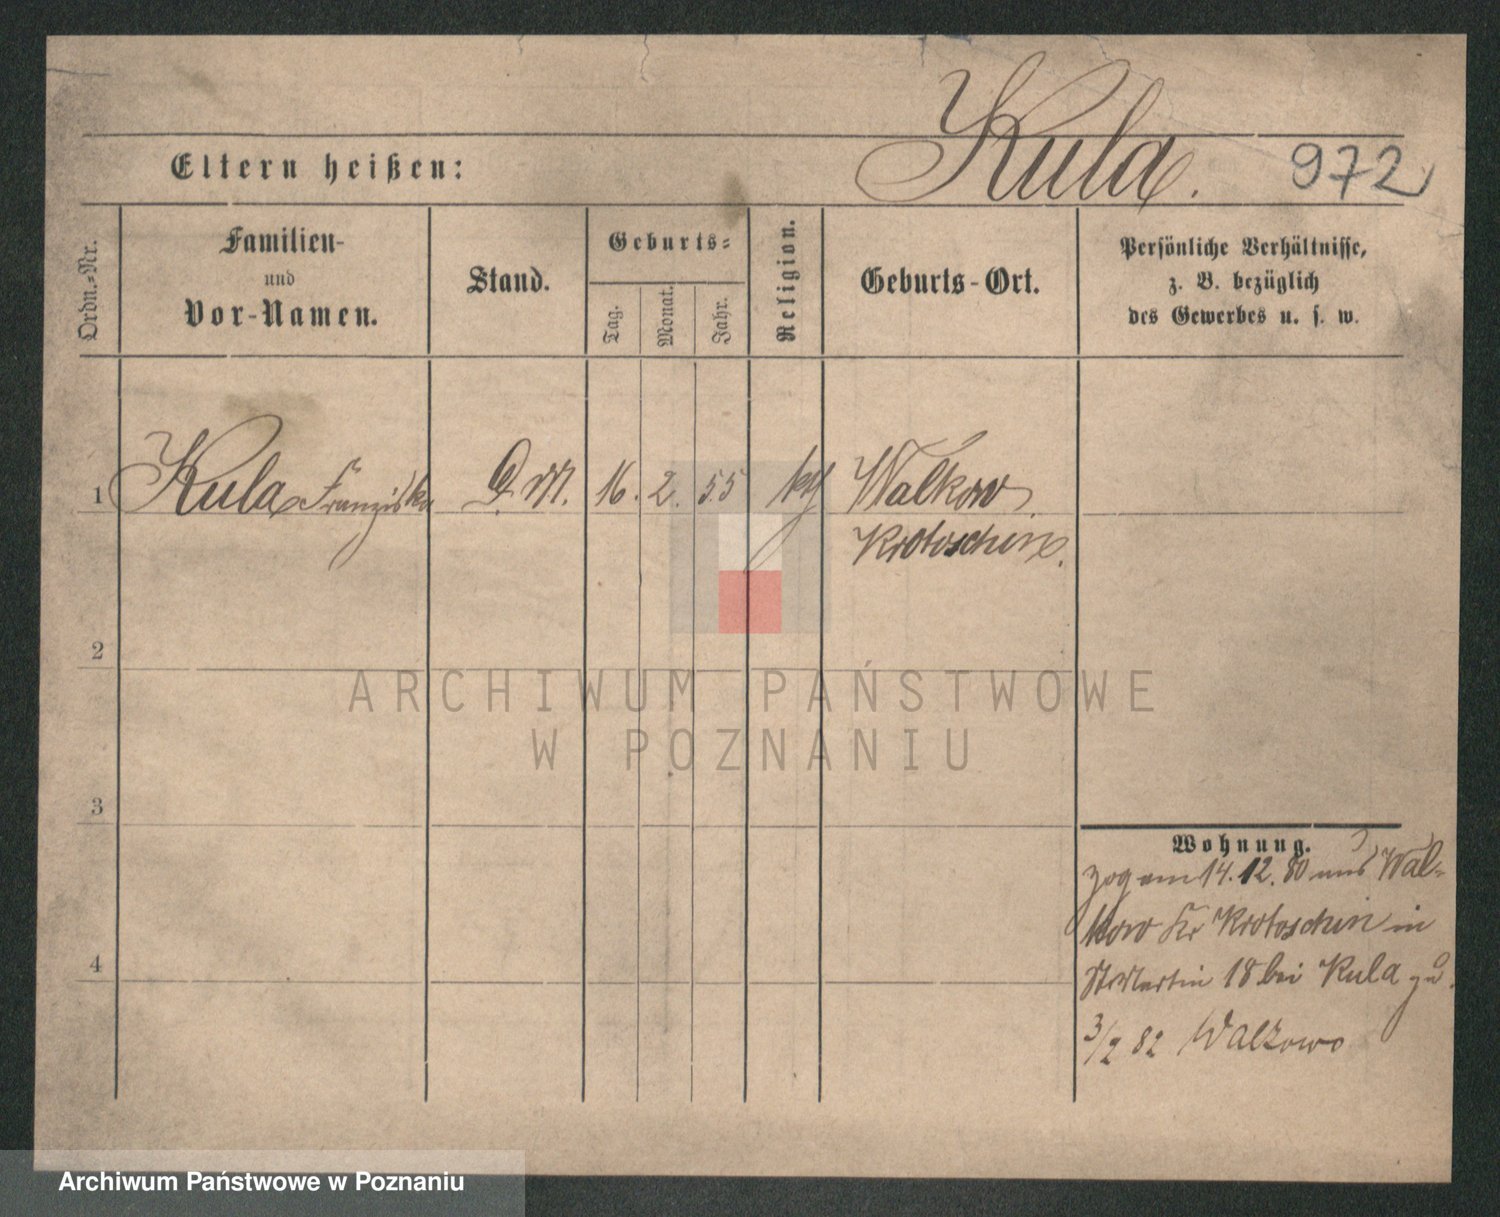 Kula.
972
Eltern heißen:
Ordn.-Nr.
Familien-
und
Vor-Namen.
Stand.
Geburts-
Tag.
Monat.
Jahr.
Religion.
Geburts-Ort.
Persönliche Verhältnisse,
z. B. bezüglich
des Gewerbes u. s. w.
1 Kula Franziska D. M. 16. 2. 55 kth Walkow
Krotoschin.
2
3
4
Wohnung.
zog am 14.12.80 aus Wal-
kow Kr Krotoschin in
St Martin 18 bei Kula zu.
3/2 82 Walkowo
ARCHIWUM PAŃSTWOWE
W POZNANIU
Archiwum Państwowe w Poznaniu